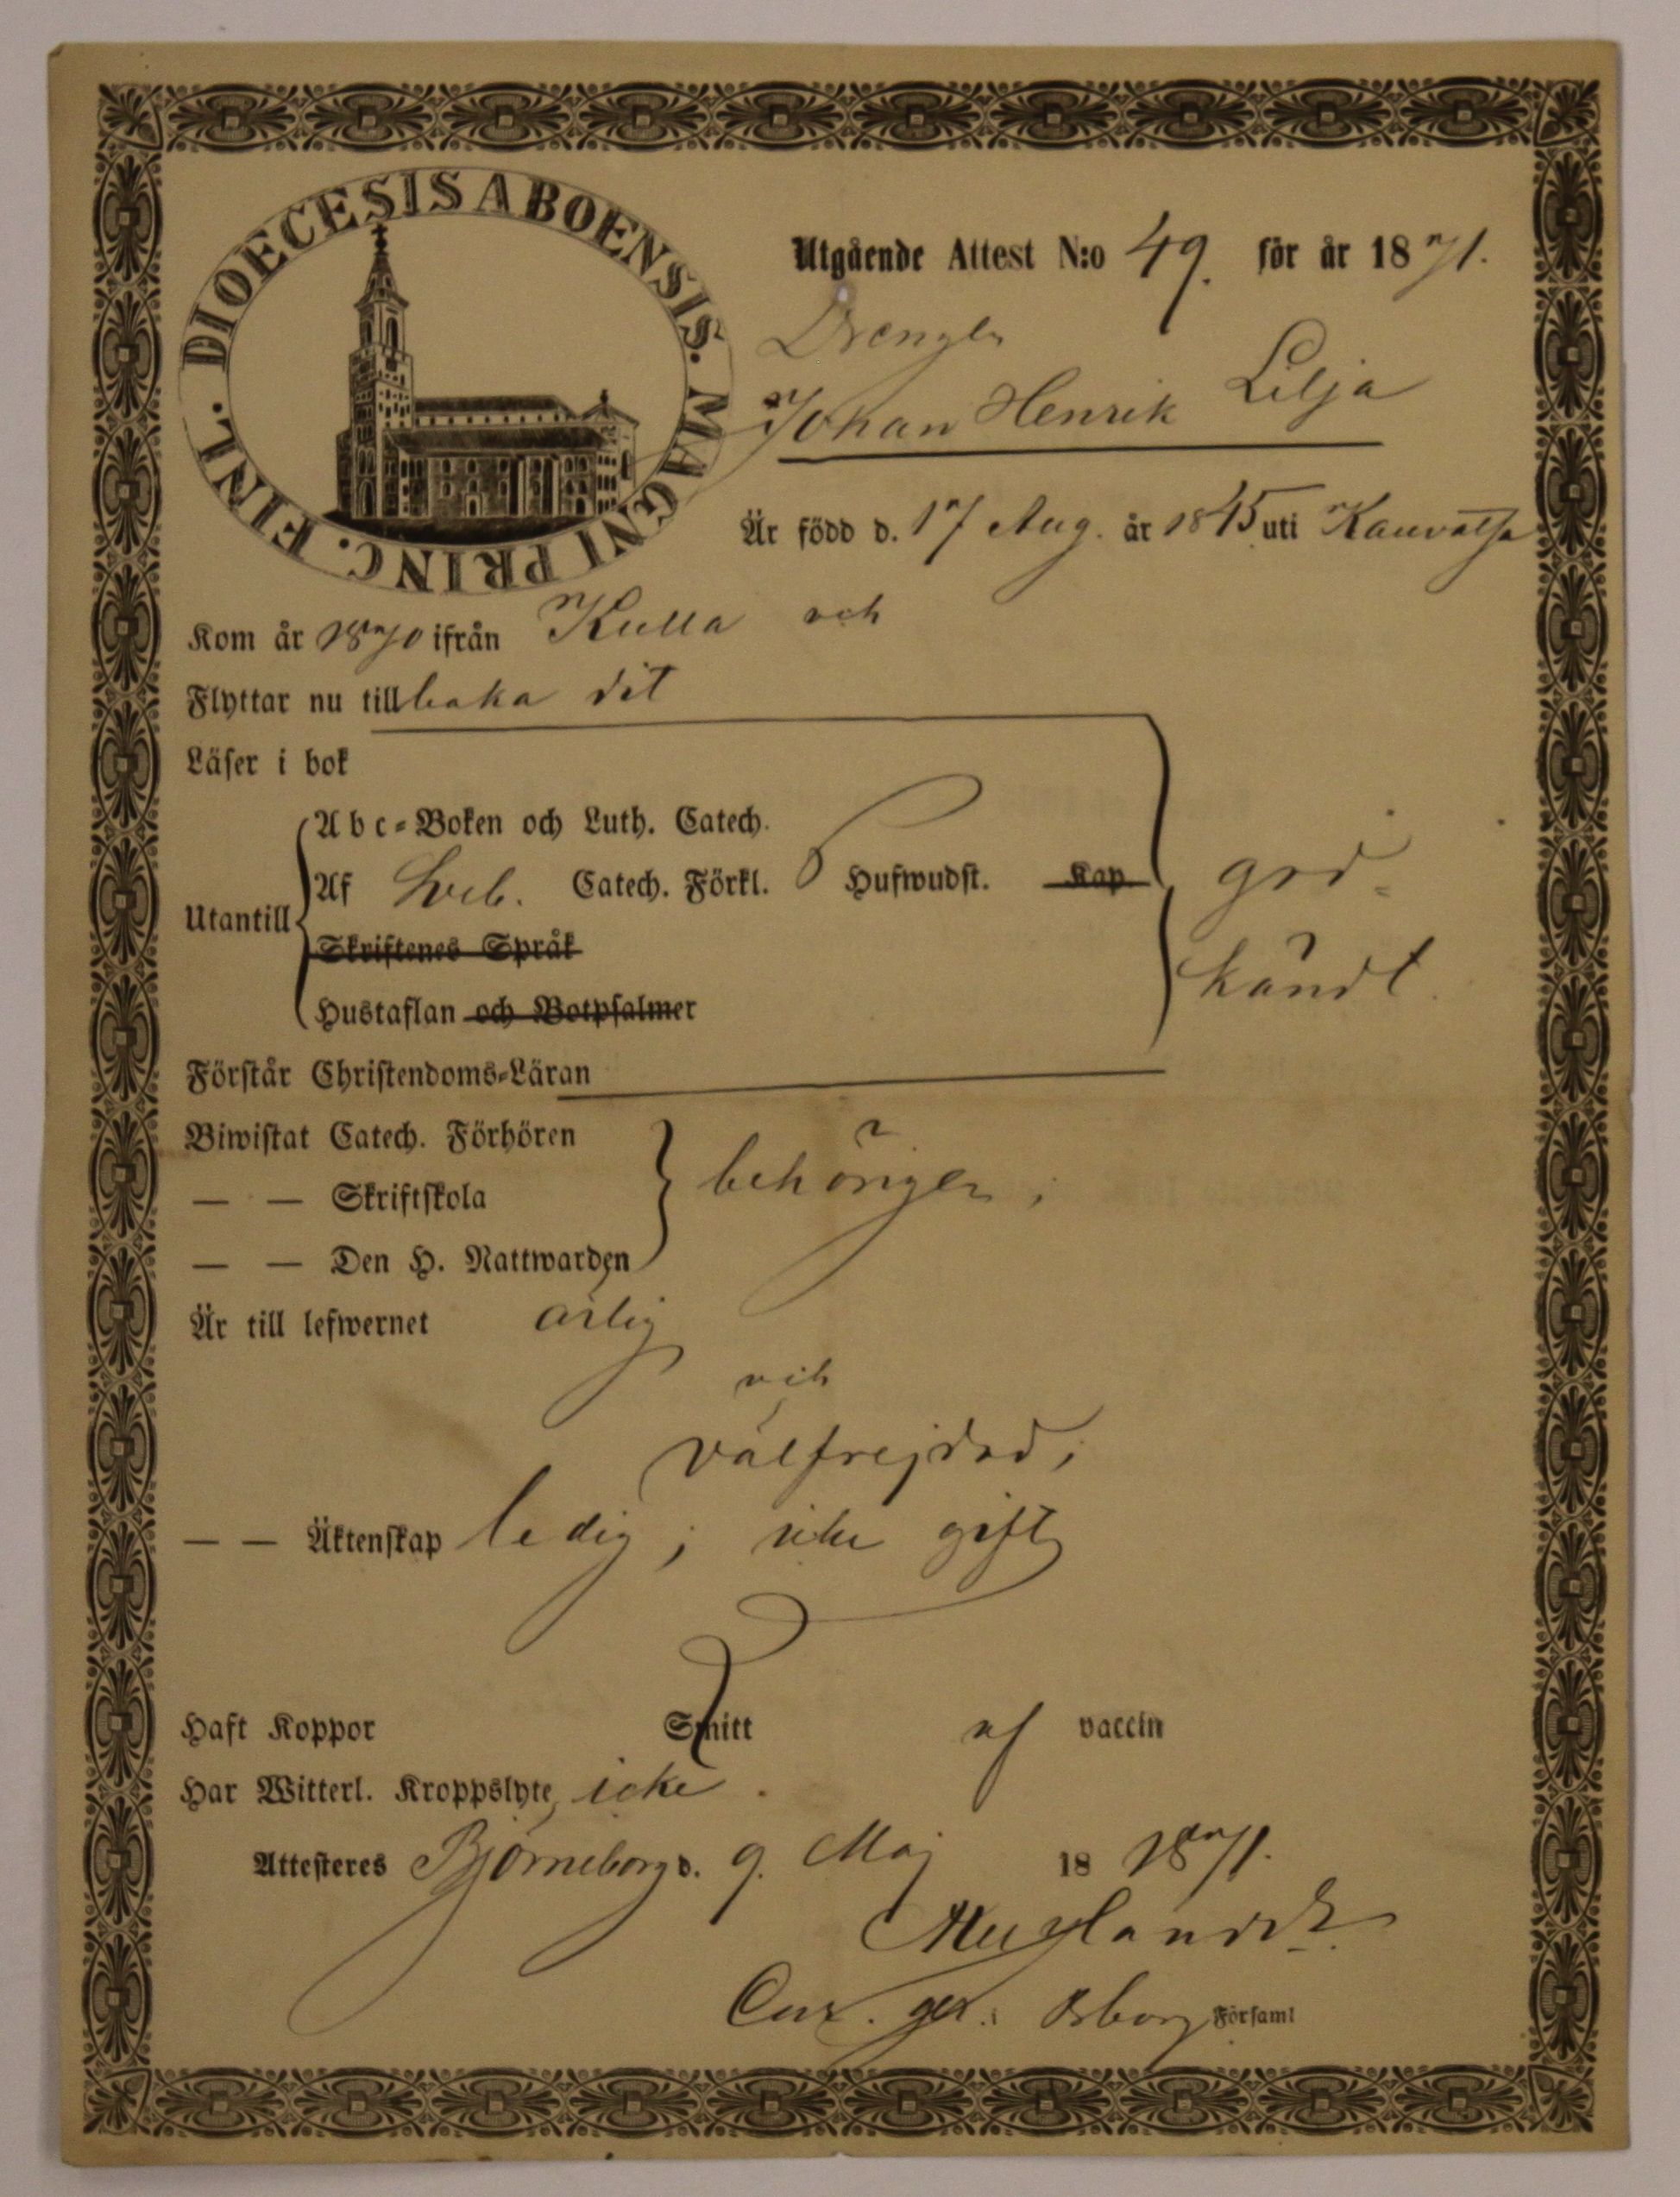 DIOECESIS ABOENSIS. MAGNI PRINC. FINL.
Utgående Attest N:o 49. för år 1871.
Drengen
Johan Henrik Lilja
Är född d. 17 Aug. år 1845 uti Kauvatsa
Kom år 1870 ifrån Kulla och
Flyttar nu tillbaka dit
Läser i bok
Abc-Boken och Luth. Catech.
Utantill Af Sveb. Catech. Förkl. Hufwudst. Kap
god-
Skriftenes Språk
kändt.
Hustaflan och Botpsalmer
Förstår Christendoms-Läran
Biwistat Catech. Förhören
— — Skriftskola behörigen;
— — Den H. Nattwarden
Är till lefwernet ärlig
och
välfrejdad;
— — Äktenskap ledig; icke gift
Haft Koppor Smitt af vaccin
Har Witterl. Kroppslyte, icke.
Attesteres Björneborg d. 9. Maj 18 1871.
Cur. i Bborg Församl